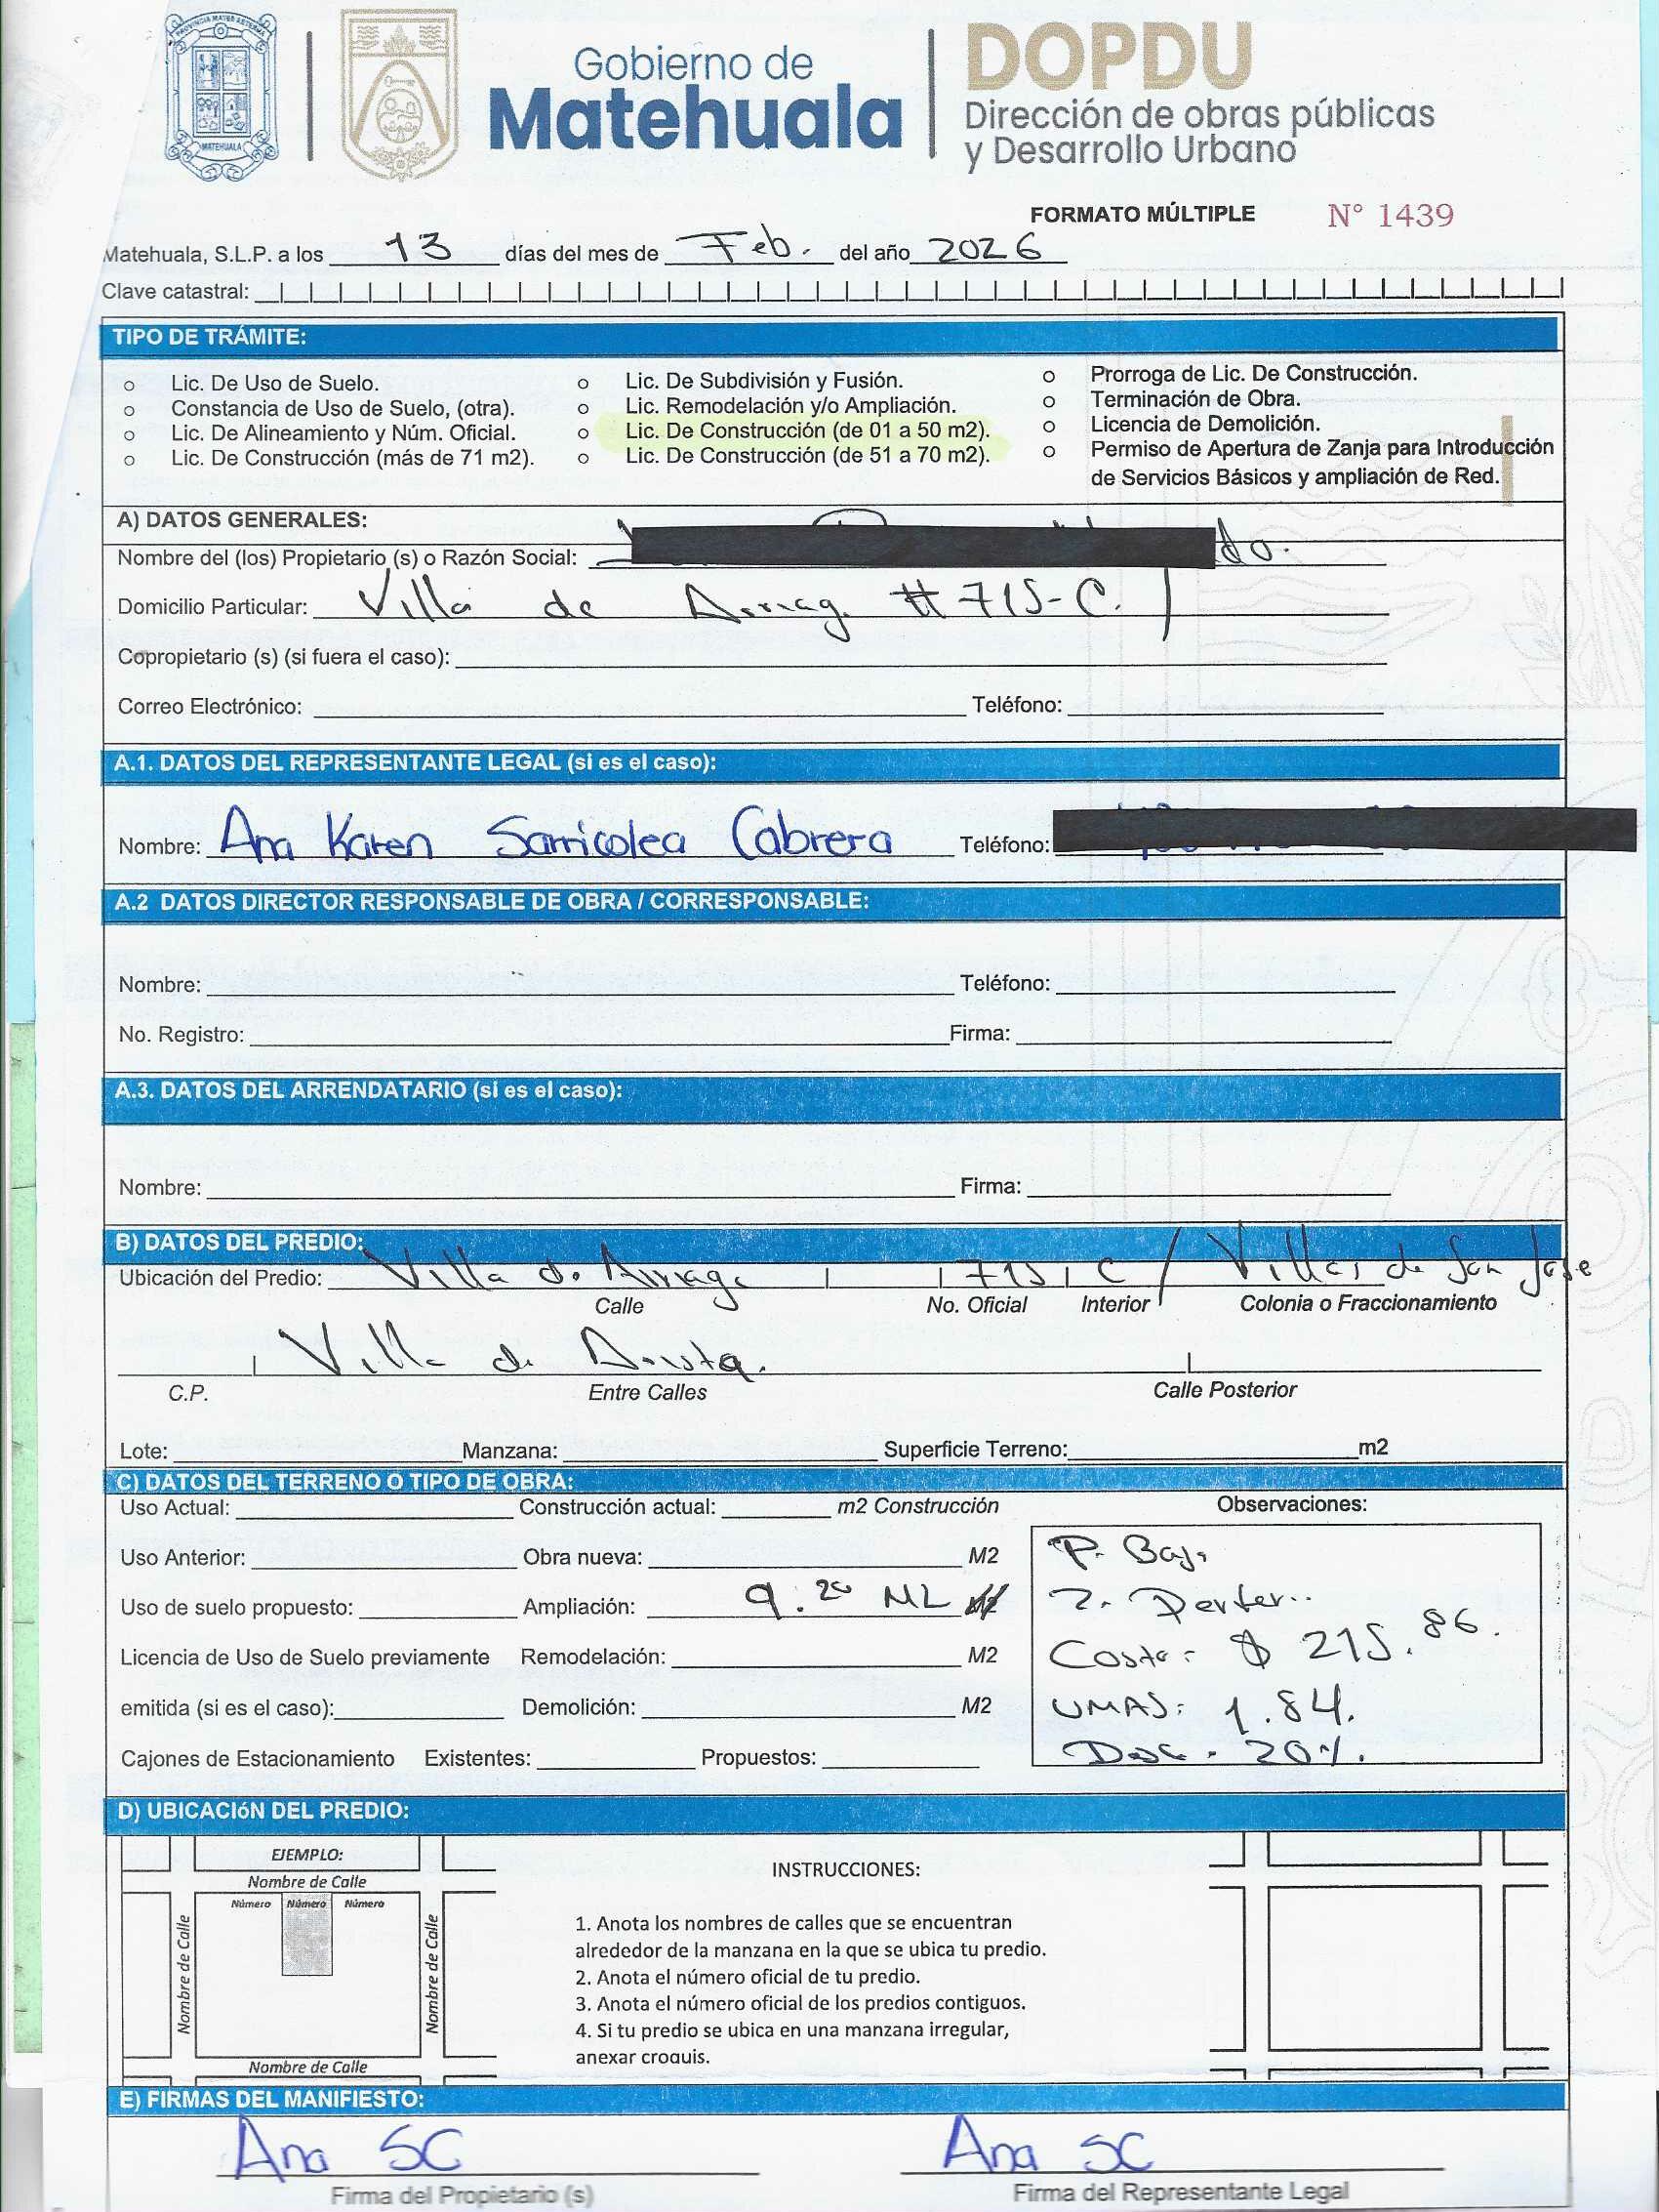 PROVINCIA MATER AETERNA
MATEHUALA
Gobierno de
Matehuala
DOPDU
Dirección de obras públicas
y Desarrollo Urbano
FORMATO MÚLTIPLE N° 1439
Matehuala, S.L.P. a los 13 días del mes de Feb. del año 2026
Clave catastral:
TIPO DE TRÁMITE:
o Lic. De Uso de Suelo.
o Constancia de Uso de Suelo, (otra).
o Lic. De Alineamiento y Núm. Oficial.
o Lic. De Construcción (más de 71 m2).
o Lic. De Subdivisión y Fusión.
o Lic. Remodelación y/o Ampliación.
o Lic. De Construcción (de 01 a 50 m2).
o Lic. De Construcción (de 51 a 70 m2).
o Prorroga de Lic. De Construcción.
o Terminación de Obra.
o Licencia de Demolición.
o Permiso de Apertura de Zanja para Introducción
de Servicios Básicos y ampliación de Red.
A) DATOS GENERALES:
Nombre del (los) Propietario (s) o Razón Social: do.
Domicilio Particular: Villa de Arriag. # 715-C.
Copropietario (s) (si fuera el caso):
Correo Electrónico: Teléfono:
A.1. DATOS DEL REPRESENTANTE LEGAL (si es el caso):
Nombre: Ana Karen Sarricolea Cabrera Teléfono:
A.2 DATOS DIRECTOR RESPONSABLE DE OBRA / CORRESPONSABLE:
Nombre: Teléfono:
No. Registro: Firma:
A.3. DATOS DEL ARRENDATARIO (si es el caso):
Nombre: Firma:
B) DATOS DEL PREDIO:
Ubicación del Predio: Villa de Arriaga 715 C / Villas de San Jose
Calle No. Oficial Interior Colonia o Fraccionamiento
Villa de
C.P. Entre Calles Calle Posterior
Lote: Manzana: Superficie Terreno: m2
C) DATOS DEL TERRENO O TIPO DE OBRA:
Uso Actual: Construcción actual: m2 Construcción Observaciones:
Uso Anterior: Obra nueva: M2
Uso de suelo propuesto: Ampliación: 9.20 ML
Licencia de Uso de Suelo previamente Remodelación: M2
emitida (si es el caso): Demolición: M2
Cajones de Estacionamiento Existentes: Propuestos:
P. Baja
Costo: $ 215.86.
UMAS: 1.84.
Desc. 20%.
D) UBICACIóN DEL PREDIO:
EJEMPLO:
Nombre de Calle
Número Número Número
Nombre de Calle
Nombre de Calle
Nombre de Calle
INSTRUCCIONES:
1. Anota los nombres de calles que se encuentran
alrededor de la manzana en la que se ubica tu predio.
2. Anota el número oficial de tu predio.
3. Anota el número oficial de los predios contiguos.
4. Si tu predio se ubica en una manzana irregular,
anexar croquis.
E) FIRMAS DEL MANIFIESTO:
Ana SC Ana SC
Firma del Propietario (s) Firma del Representante Legal